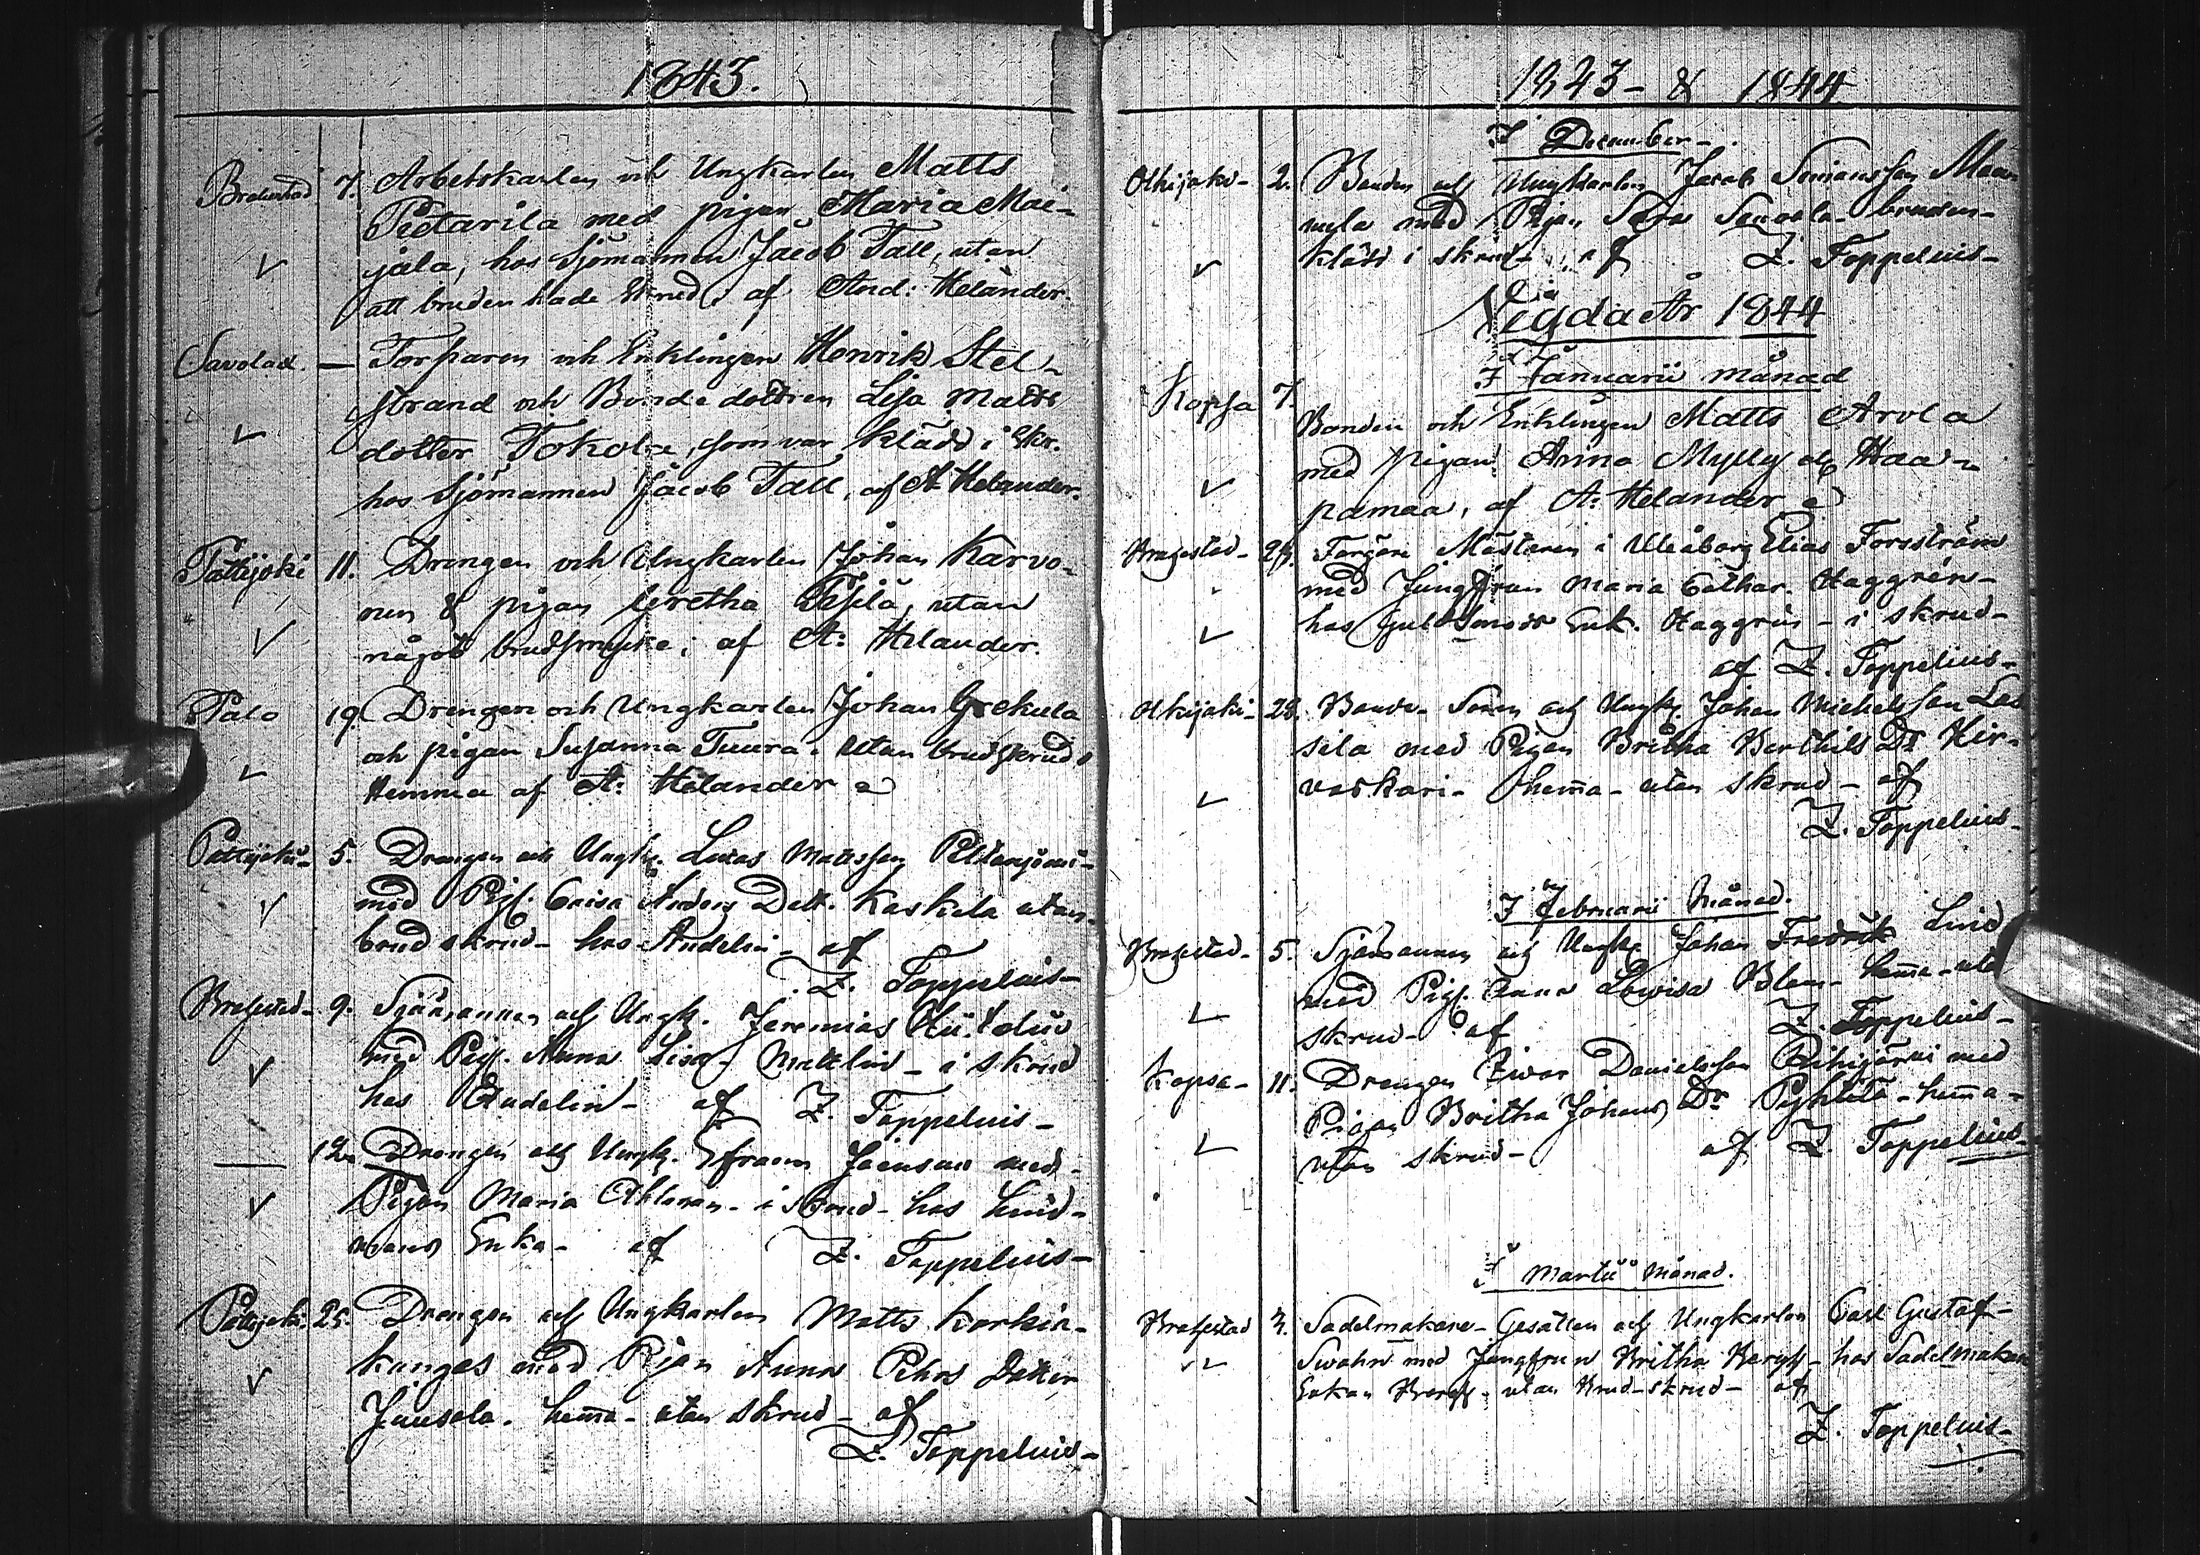 1843.
Brahestad 7. Arbetskarlen och Ungkarlen Matts
Pietarila med pigan Maria Mai-
jala, hos Sjömannen Jacob Tall, utan
att bruden hade skrud; af And: Helander.
Savolad. — Torparen och Enklingen Henrik Stel-
strand och Bondedottren Lisa Matts
dotter Tokola, som var klädd i Skr.
hos Sjömannen Jacob Tall, af A: Helander.
Pattijoki 11. Drengen och Ungkarlen Johan Karvo-
nen & pigan Gretha utan
något brudsmycke; af A: Helander.
Palo 19. Drengen och Ungkarlen Johan Grekula
och pigan Susanna Tuura. utan brudskrud
Hemma af A: Helander
Pattijoki- 5. Drengen och Ungk. Lucas Mattsson
med Pig. Caisa Anders Dott. Kaskela utan
brudskrud- hos Andelin- af
Z. Toppelius-
Brahestad- 9. Sjömannen och Ungk. Jeremias
med Pig. Anna Lisa Mattlin - i skrud
hos Andelin- af Z. Toppelius-
12. Drengen och Ungk. Efraim med-
Pigan Maria - i skrud- hos Lind-
mans Enka- af Z. Toppelius-
Pattijoki. 25. Drengen och Ungkarlen Matts Korkia-
kangas med Pigan Anna Pehrs Dotter
Juusola. hema- utan skrud- af
Z. Toppelius-
1843- & 1844
I December-
Olkijoki- 2. Bonden och Ungkarlen Jacob Simonsson
med Pigan Sara bruden-
klädd i skrud af Z. Toppelius-
Nygda År 1844
I Januarii månad
Kopsa 7.
Bonden och Enklingen Matts Arola
med pigan Anna Mylly och Haa-
pamaa, af A: Helander
Brahestad- Färgare Mästaren i Uleåborg Elias Forsström
med Jungfrun Maria Cathar. Haggrén-
hos Enk. Haggrén - i skrud-
af Z. Toppelius-
Olkijoki- 28. Bonde- Sonen och Ungk. Johan Michelsson Las
sila med Pigan Britha Berthils Dr Hir-
vaskari- hema- utan skrud- af
Z. Toppelius-
I Februarii Månad.
Brahestad- 5. Sjömannen och Ungk. Johan Fredrik Lind
med Pig. Anna Lovisa Blom- hema- utan
skrud- af Z. Toppelius-
Kopsa- 11. Drengen Iwar Danielsson Pitkijärvi med
Pigan Britha Johans Dr - hema-
utan skrud- af Z. Toppelius-
I Martii Månad.
Brahestad 3. Sadelmakare- Gesällen och Ungkarlen Carl Gustaf-
Swahn med Jungfrun Britha Bergh- hos Sadelmakare
Enkan Bergh- utan Brud-skrud- af
Z. Toppelius-